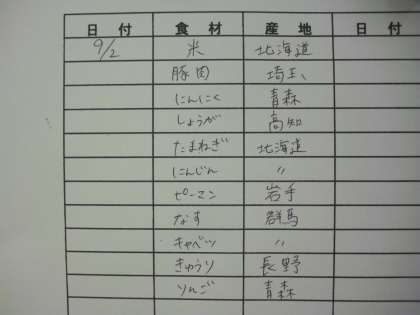 日付 食材 産地 日付
9/2 米 北海道
豚肉 埼玉
にんにく 青森
しょうが 高知
たまねぎ 北海道
にんじん 〃
ピーマン 岩手
なす 群馬
キャベツ 〃
きゅうり 長野
りんご 青森